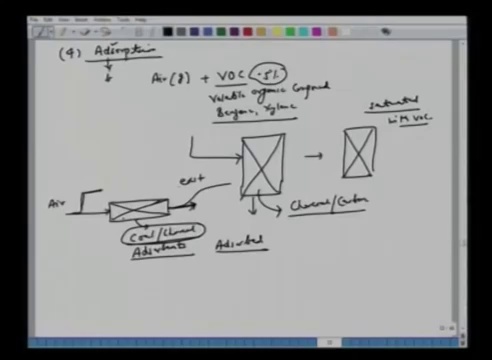 (4) Adsorption
Air (g) + VOC (.5%)
Volatile organic compound
Benzene, xylene
saturated
with VOC
exit
Air
Charcoal/Carbon
Coal/Charcoal
Adsorbents
Adsorbed